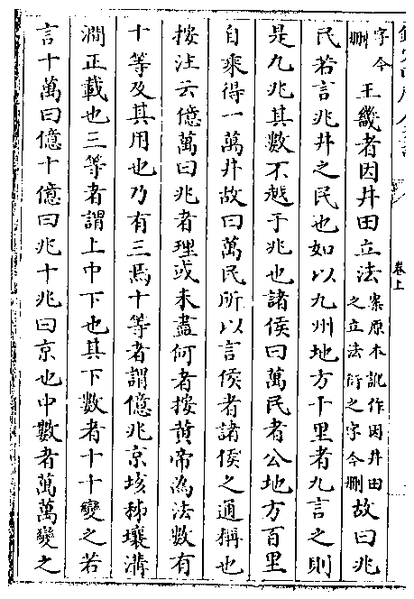 字今
刪 王畿者因井田立法 案原本訛作因井田
之立法衍之字今刪 故曰兆
民若言兆井之民也如以九州地方千里者九言之則
是九兆其數不越于兆也諸侯曰萬民者公地方百里
自乘得一萬井故曰萬民所以言侯者諸侯之通稱也
按注云億萬曰兆者理或未盡何者按黄帝為法數有
十等及其用也乃有三焉十等者謂億兆京垓秭壤溝
澗正載也三等者謂上中下也其下數者十十變之若
言十萬曰億十億曰兆十兆曰京也中數者萬萬變之
卷上